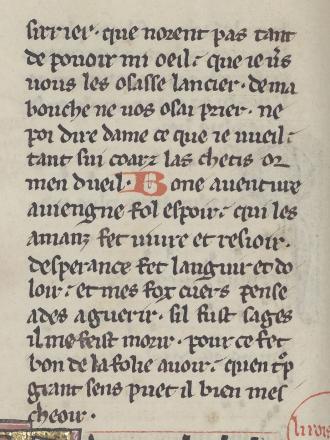 sirrier · que norent pas tant
de pouoir mi oeil : que ie u's
uous les osasse lancier · de ma
bouche ne uos osai prier · ne
poi dire dame ce que ie uueil :
tant fui coarz las chetis or
men dueil · Bone auenture
auiengne fol espoir · qui les
amanz fet uiure et resioir ·
desperance fet languir et do
loir : et mes fox cuers pense
ades a guerir · sil fust sages
il me feist morir · pour ce fet
bon de la folie auoir : quen t'p
grant sens puet il bien mes
cheoir ·